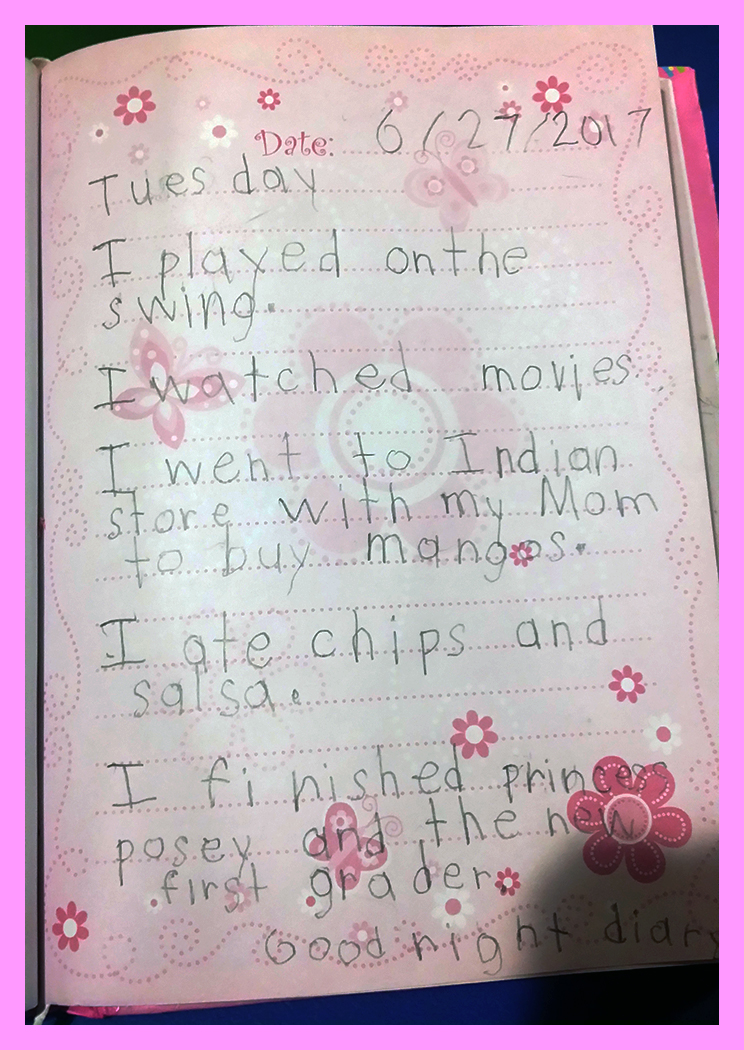 Date: 6/27/2017
Tuesday
I played on the
swing.
I watched movies.
I went to Indian
store with my Mom
to buy mangos.
I ate chips and
salsa.
I finished princess
posey and the new
first grader.
Good night diary